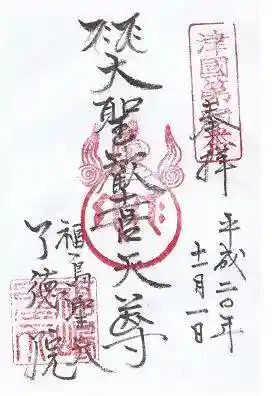 奉拝
平成二〇年
十一月一日
大聖歓喜天尊
福島聖天
了徳院